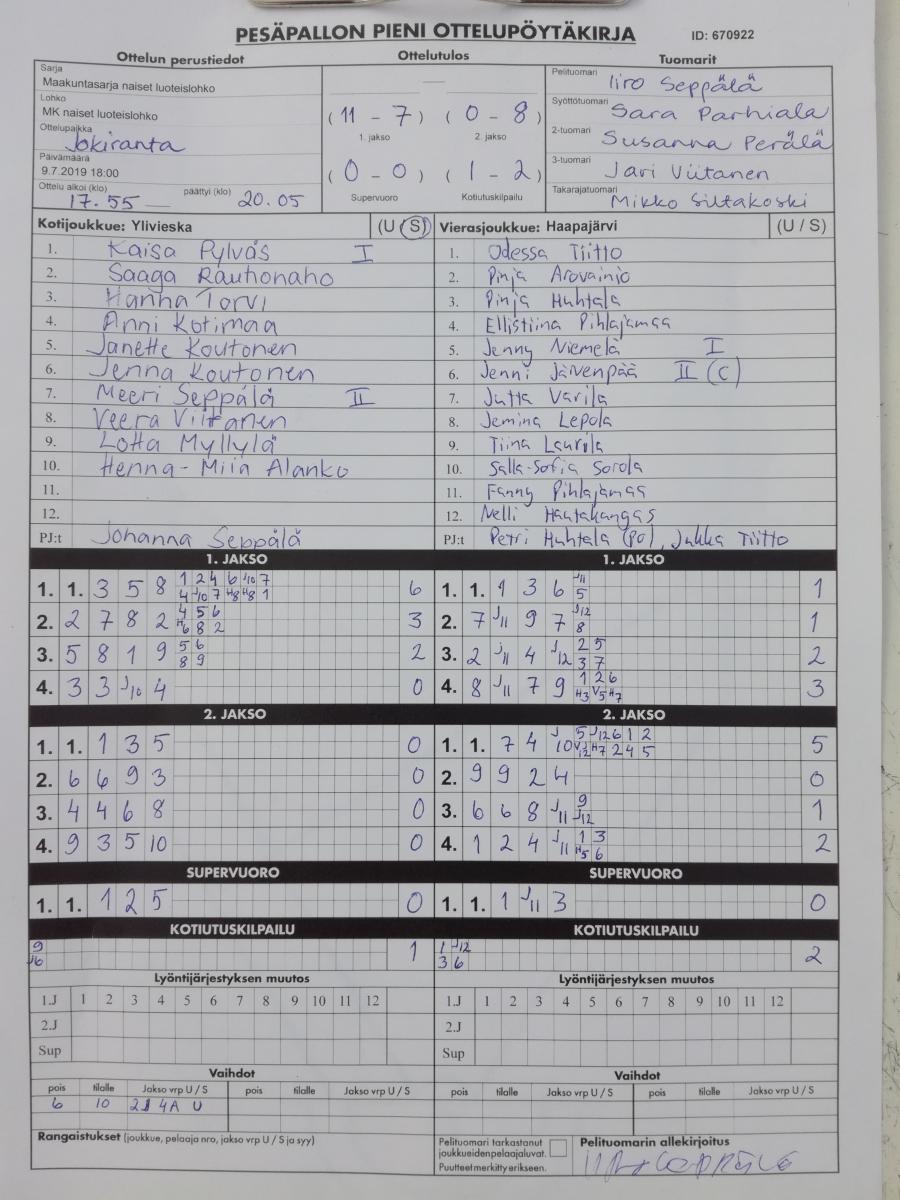 PESÄPALLON PIENI OTTELUPÖYTÄKIRJA ID: 670922
Ottelun perustiedot Ottelutulos Tuomarit
Sarja
Maakuntasarja naiset luoteislohko
Lohko
MK naiset luoteislohko
Ottelupaikka
Jokiranta
Päivämäärä
9.7.2019 18:00
Ottelu alkoi (klo) päättyi (klo)
17.55 20.05
(11 - 7) (0 - 8)
1. jakso 2. jakso
(0 - 0) (1 - 2)
Supervuoro Kotiutuskilpailu
Pelituomari Iiro Seppälä
Syöttötuomari Sara Parhiala
2-tuomari Susanna Perälä
3-tuomari Jari Viitanen
Takarajatuomari Mikko Siltakoski
Kotijoukkue: Ylivieska (U / S)
1. Kaisa Pylväs I
2. Saaga Rautionaho
3. Hanna Torvi
4. Anni Kotimaa
5. Janette Koutonen
6. Jenna Koutonen
7. Meeri Seppälä II
8. Veera Viitanen
9. Lotta Myllylä
10. Henna-Miia Alanko
11.
12.
PJ:t Johanna Seppälä
Vierasjoukkue: Haapajärvi (U / S)
1. Odessa Tiitto
2. Pinja Arovainio
3. Pinja Huhtala
4. Ellistiina Pihlajamaa
5. Jenny Niemelä I
6. Jenni Järvenpää II (C)
7. Jutta Varila
8. Jemina Lepola
9. Tiina Laurila
10. Salla-Sofia Sorola
11. Fanny Pihlajamaa
12. Nelli Hautakangas
PJ:t Petri Huhtala (PJ), Jukka Tiitto
1. JAKSO
1. 1. 3 5 8 1 2 4 6 J10 7 6
4 J10 7 H8 H8 1
2. 2 7 8 2 4 5 6 3
H6 8 2
3. 5 8 1 9 5 6 2
8 9
4. 3 3 J10 4 0
1. JAKSO
1. 1. 1 3 6 J11 1
5
2. 7 J11 9 7 J12 1
8
3. 2 J11 4 J12 2 5 2
3 7
4. 8 J11 7 9 1 2 6 3
H3 V5 H7
2. JAKSO
1. 1. 1 3 5 0
2. 6 6 9 3 0
3. 4 4 6 8 0
4. 9 3 5 10 0
2. JAKSO
1. 1. 7 4 J10 5 J12 6 1 2 5
V12 H7 2 4 5
2. 9 9 2 4 0
3. 6 6 8 J11 9 1
J12
4. 1 2 4 J11 1 3 2
H5 6
SUPERVUORO
1. 1. 1 2 5 0
SUPERVUORO
1. 1. 1 J11 3 0
KOTIUTUSKILPAILU
9 1
KOTIUTUSKILPAILU
1 J12 2
3 6
Lyöntijärjestyksen muutos
1.J 1 2 3 4 5 6 7 8 9 10 11 12
2.J
Sup
Lyöntijärjestyksen muutos
1.J 1 2 3 4 5 6 7 8 9 10 11 12
2.J
Sup
Vaihdot
pois tilalle Jakso vrp U / S pois tilalle Jakso vrp U / S
6 10 2J 4A U
Vaihdot
pois tilalle Jakso vrp U / S pois tilalle Jakso vrp U / S
Rangaistukset (joukkue, pelaaja nro, jakso vrp U / S ja syy)
Pelituomari tarkastanut
joukkueiden pelaajaluvat.
Puutteet merkitty erikseen.
Pelituomarin allekirjoitus